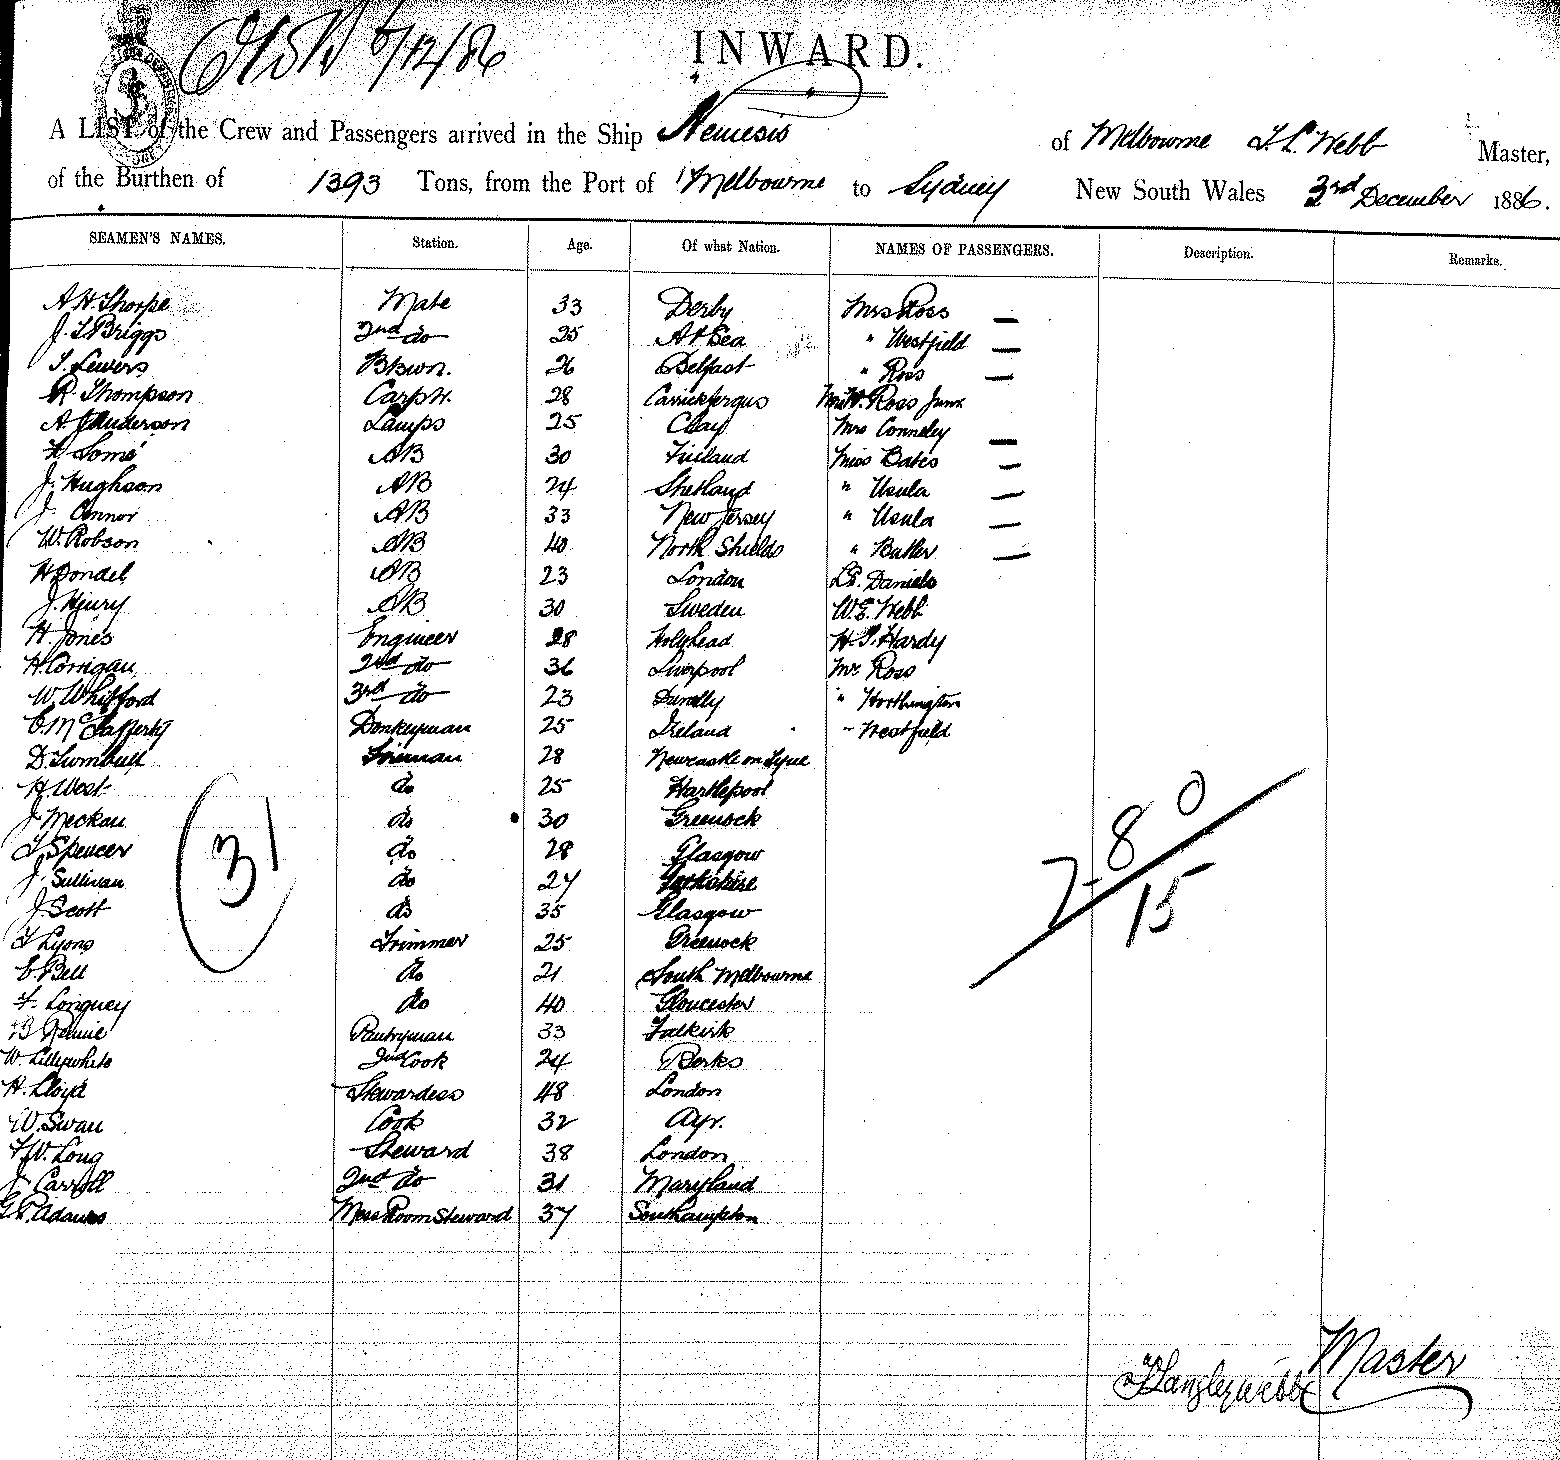 6/12/86
INWARD.
A LIST of the Crew and Passengers arrived in the Ship Nemesis of Melbourne T. L. Webb Master,
of the Burthen of 1393 Tons, from the Port of Melbourne to Sydney New South Wales 3rd December 1886.
SEAMEN'S NAMES. Station. Age. Of what Nation. NAMES OF PASSENGERS. Description. Remarks.
A H Thorpe Mate 33 Derby Mrs Ross —
J. T. Briggs 2nd do 25 At Sea " Westfield —
T. Lewers Btswn. 26 Belfast " Ross —
R. Thompson Carptr. 28 Carrickfergus Ross Junr
A. J. Anderson Lamps 25 Clay Mrs Conneley —
AB 30 Finland Miss Bates —
J. Hughson AB 24 Shetland " Usula —
J. Connor AB 33 New Jersey " Usula —
W. Robson AB 40 North Shields " Butler —
H Dondel AB 23 London Daniels
J. Henry AB 30 Sweden W. E. Webb
H. Jones Engineer 28 Holyhead H. T. Hardy
H Corrigan 2nd do 36 Liverpool Mr Ross
W. Whifford 3rd do 23 " Worthington
E. McLafferty Donkeyman 25 Ireland " Westfield
D. Turnbull Fireman 28 Newcastle on Tyne
H West do 25 Hartlepool
J Meckau do 30 Greenock
T Spencer do 28 Glasgow
J. Sullivan do 27 Yorkshire
J Scott do 35 Glasgow
T Lyons Trimmer 25 Greenock
E Bell do 21 South Melbourne
F. Longuey do 40 Gloucester
B Rennie Pantryman 33 Falkirk
W. Lillywhite 2nd Cook 24 Berks
H. Lloyd Stewardess 48 London
W. Swan Cook 32 Ayr.
F. W. Long Steward 38 London
J Carroll 2nd do 31 Maryland
G. P. Adams Mess Room Steward 37 Southampton
31
7-8 0
15
T Langley Webb Master